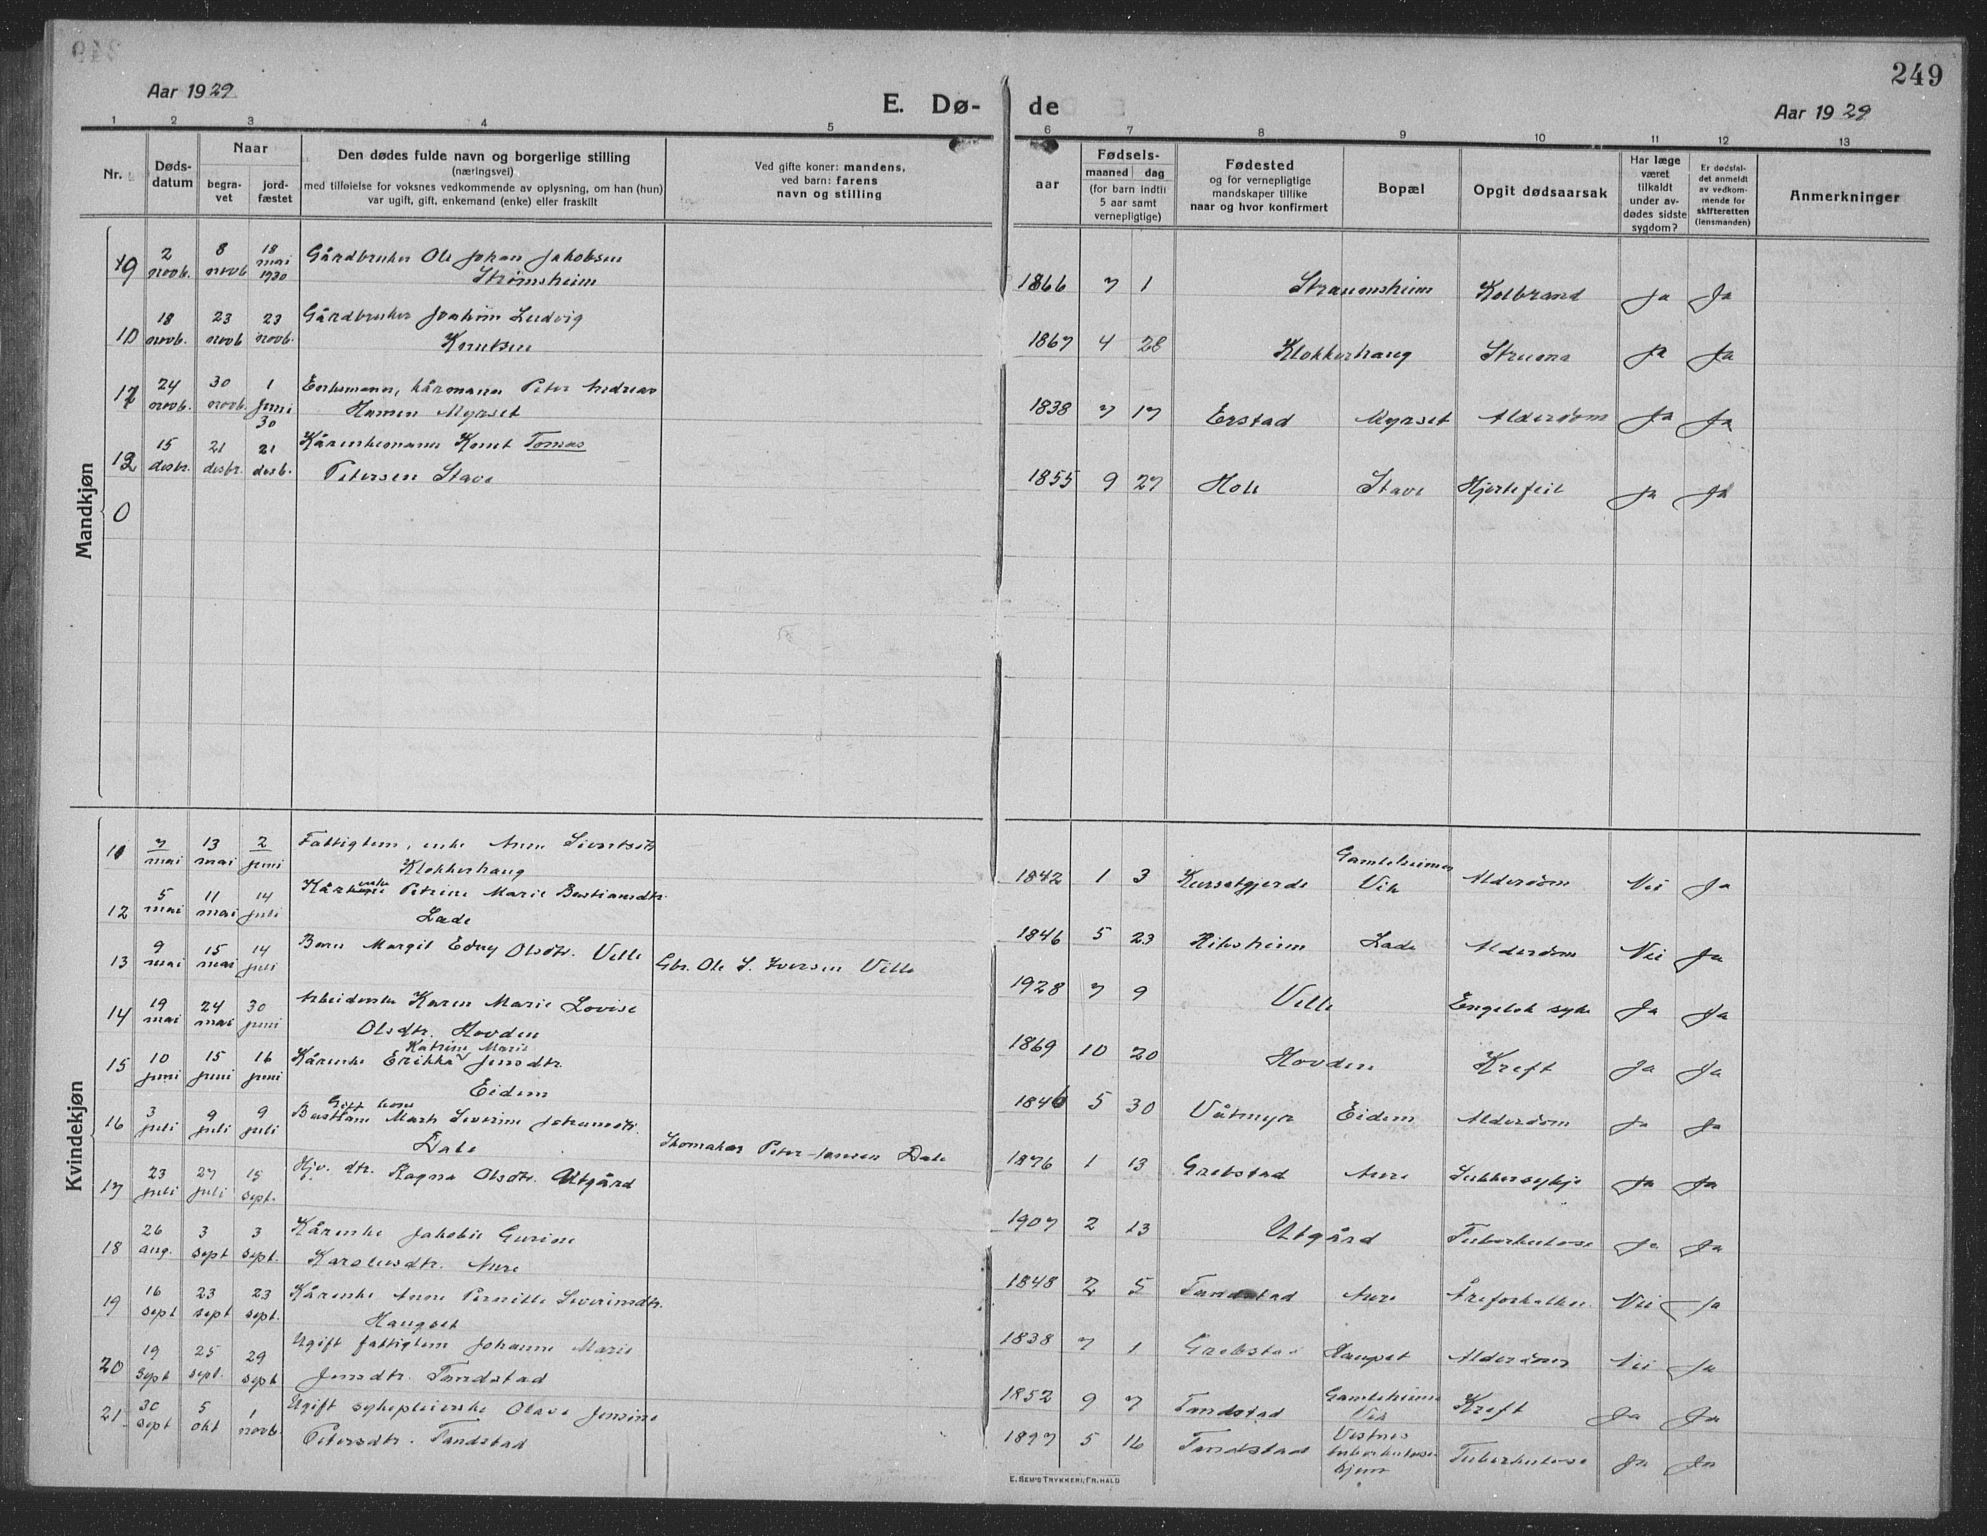 249
Aar 1929
E. Dø-
de
Aar 1929
1 2 3 4 5 6 7 8 9 10 11 12 13
Nr.
Døds-
datum
Naar
begra-
vet
jord-
fæstet
Den dødes fulde navn og borgerlige stilling
(næringsvei)
med tilføielse for voksnes vedkommende av oplysning, om han (hun)
var ugift, gift, enkemand (enke) eller fraskilt
Ved gifte koner: mandens,
ved barn: farens
navn og stilling
aar
Fødsels-
maaned dag
(for barn indtil
5 aar samt
vernepligtige)
Fødested
og for vernepligtige
mandskaper tillike
naar og hvor konfirmert
Bopæl
Opgit dødsaarsak
Har læge
været
tilkaldt
under av-
dødes sidste
sygdom?
Er dødsfal-
det anmeldt
av vedkom-
mende for
skifteretten
(lensmanden)
Anmerkninger
Mandkjøn
9 2 novb. 8 novb 18 mai 1930 Gårdbruker Ole Johan Jakobsen
Strømsheim 1866 7 1 Straumsheim Kolbrand Ja Ja
10 18 novb. 23 novb 23 novb. Gårdbruker Joakim Ludvig
Knutsen 1867 4 28 Klokkerhaug Struma Ja Ja
24 novb. 30 novb. 1 juni 30 Enkemann, kårmann Peter Andreas
Hansen Myrset 1838 7 17 Erstad Myrset Alderdom Ja Ja
12 15 desbr. 21 desbr. 21 desb. Kårenkemann Knut Tomas
Petersen Stave 1855 9 27 Hole Stave Hjertefeil Ja Ja
0
Kvindekjøn
11 7 mai 13 mai 2 juni Fattiglem, enke Anne Sivertsdtr
Klokkerhaug 1842 1 3 Gamleheimen Vik Alderdom Nei Ja
12 5 mai 11 mai 14 juli Kårenke Petrine Marie Bastiansdtr.
Lade 1846 5 23 Lade Alderdom Nei Ja
13 9 mai 15 mai 14 juli Barn Margit Edny Olsdtr. Velle Gbr. Ole S. Iversen Velle 1928 7 9 Velle Engelsk syke Ja Ja
14 19 mai 24 mai 30 juni Arbeiderske Karen Marie Lovise
Olsdtr. Hovden 1869 10 20 Hovden Kreft Ja Ja
15 10 juni 15 juni 16 juni Kårenke Erikka Katrine Marie Jensdtr.
Eidem 1846 5 30 Våtmyr Eidem Alderdom Ja Ja
16 3 juli 9 juli 9 juli Gift kone
Severine Johansdtr.
Dale Skomaker Peter Jansen Dale 1876 1 13 Grebstad Aure Sukkersykje Ja Ja
17 23 juli 27 juli 15 sept. Hjv. dtr. Ragna Olsdtr. Utgård 1907 2 13 Utgård Tuberkulose Ja Ja
18 26 aug. 3 sept 3 sept. Kårenke Jakobie Gurine
Karolusdtr. Aure 1848 2 5 Tandstad Aure Åreforkalkn. Nei Ja
19 16 sept 23 sept 23 sept. Kårenke Anne Pernille Severinsdtr.
Haugset 1838 7 1 Grebstad Haugset Alderdom Nei Ja
20 19 sept 25 sept. 29 sept Ugift fattiglem Johanne Marie
Jensdtr. Tandstad 1852 9 7 Tandstad Gamleheimen Vik Kreft Ja Ja
21 30 sept 5 okt 1 novb. Ugift sykepleierske Olave Jensine
Petersdtr. Tandstad 1897 5 16 Tandstad Vestnes tuberkulose hjem Tuberkulose Ja Ja
E. Sem's Trykkeri, Fr.hald